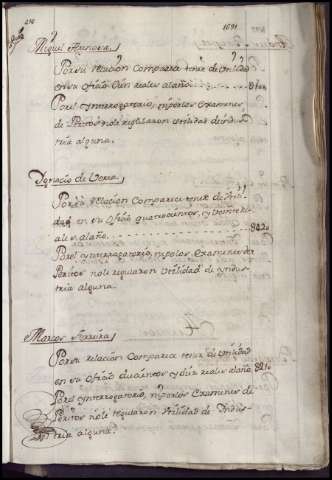 1691
Miguel
Por su relacion comparece tener de Utilidad
en su oficio Cien reales al año
Por el ynterrogatorio, ni por los Examenes
de Peritos no le regularon utilidad de indus
tria alguna.
Ygnacio de
Por su relacion Comparece tener de Utili
dad en su oficio quatrocientos, y veinte re
ales al año 420
Por el ynterrogatorio, ni por los Examenes de
Peritos no le regularon Utilidad de yndus
tria alguna.
Marcos
Por su relacion Comparece tener de Utilidad
en su oficio ducientos y diez reales al año 210
Por el ynterrogatorio, ni por los Examenes de
Peritos no le regularon Utilidad de Yndus
tria alguna.